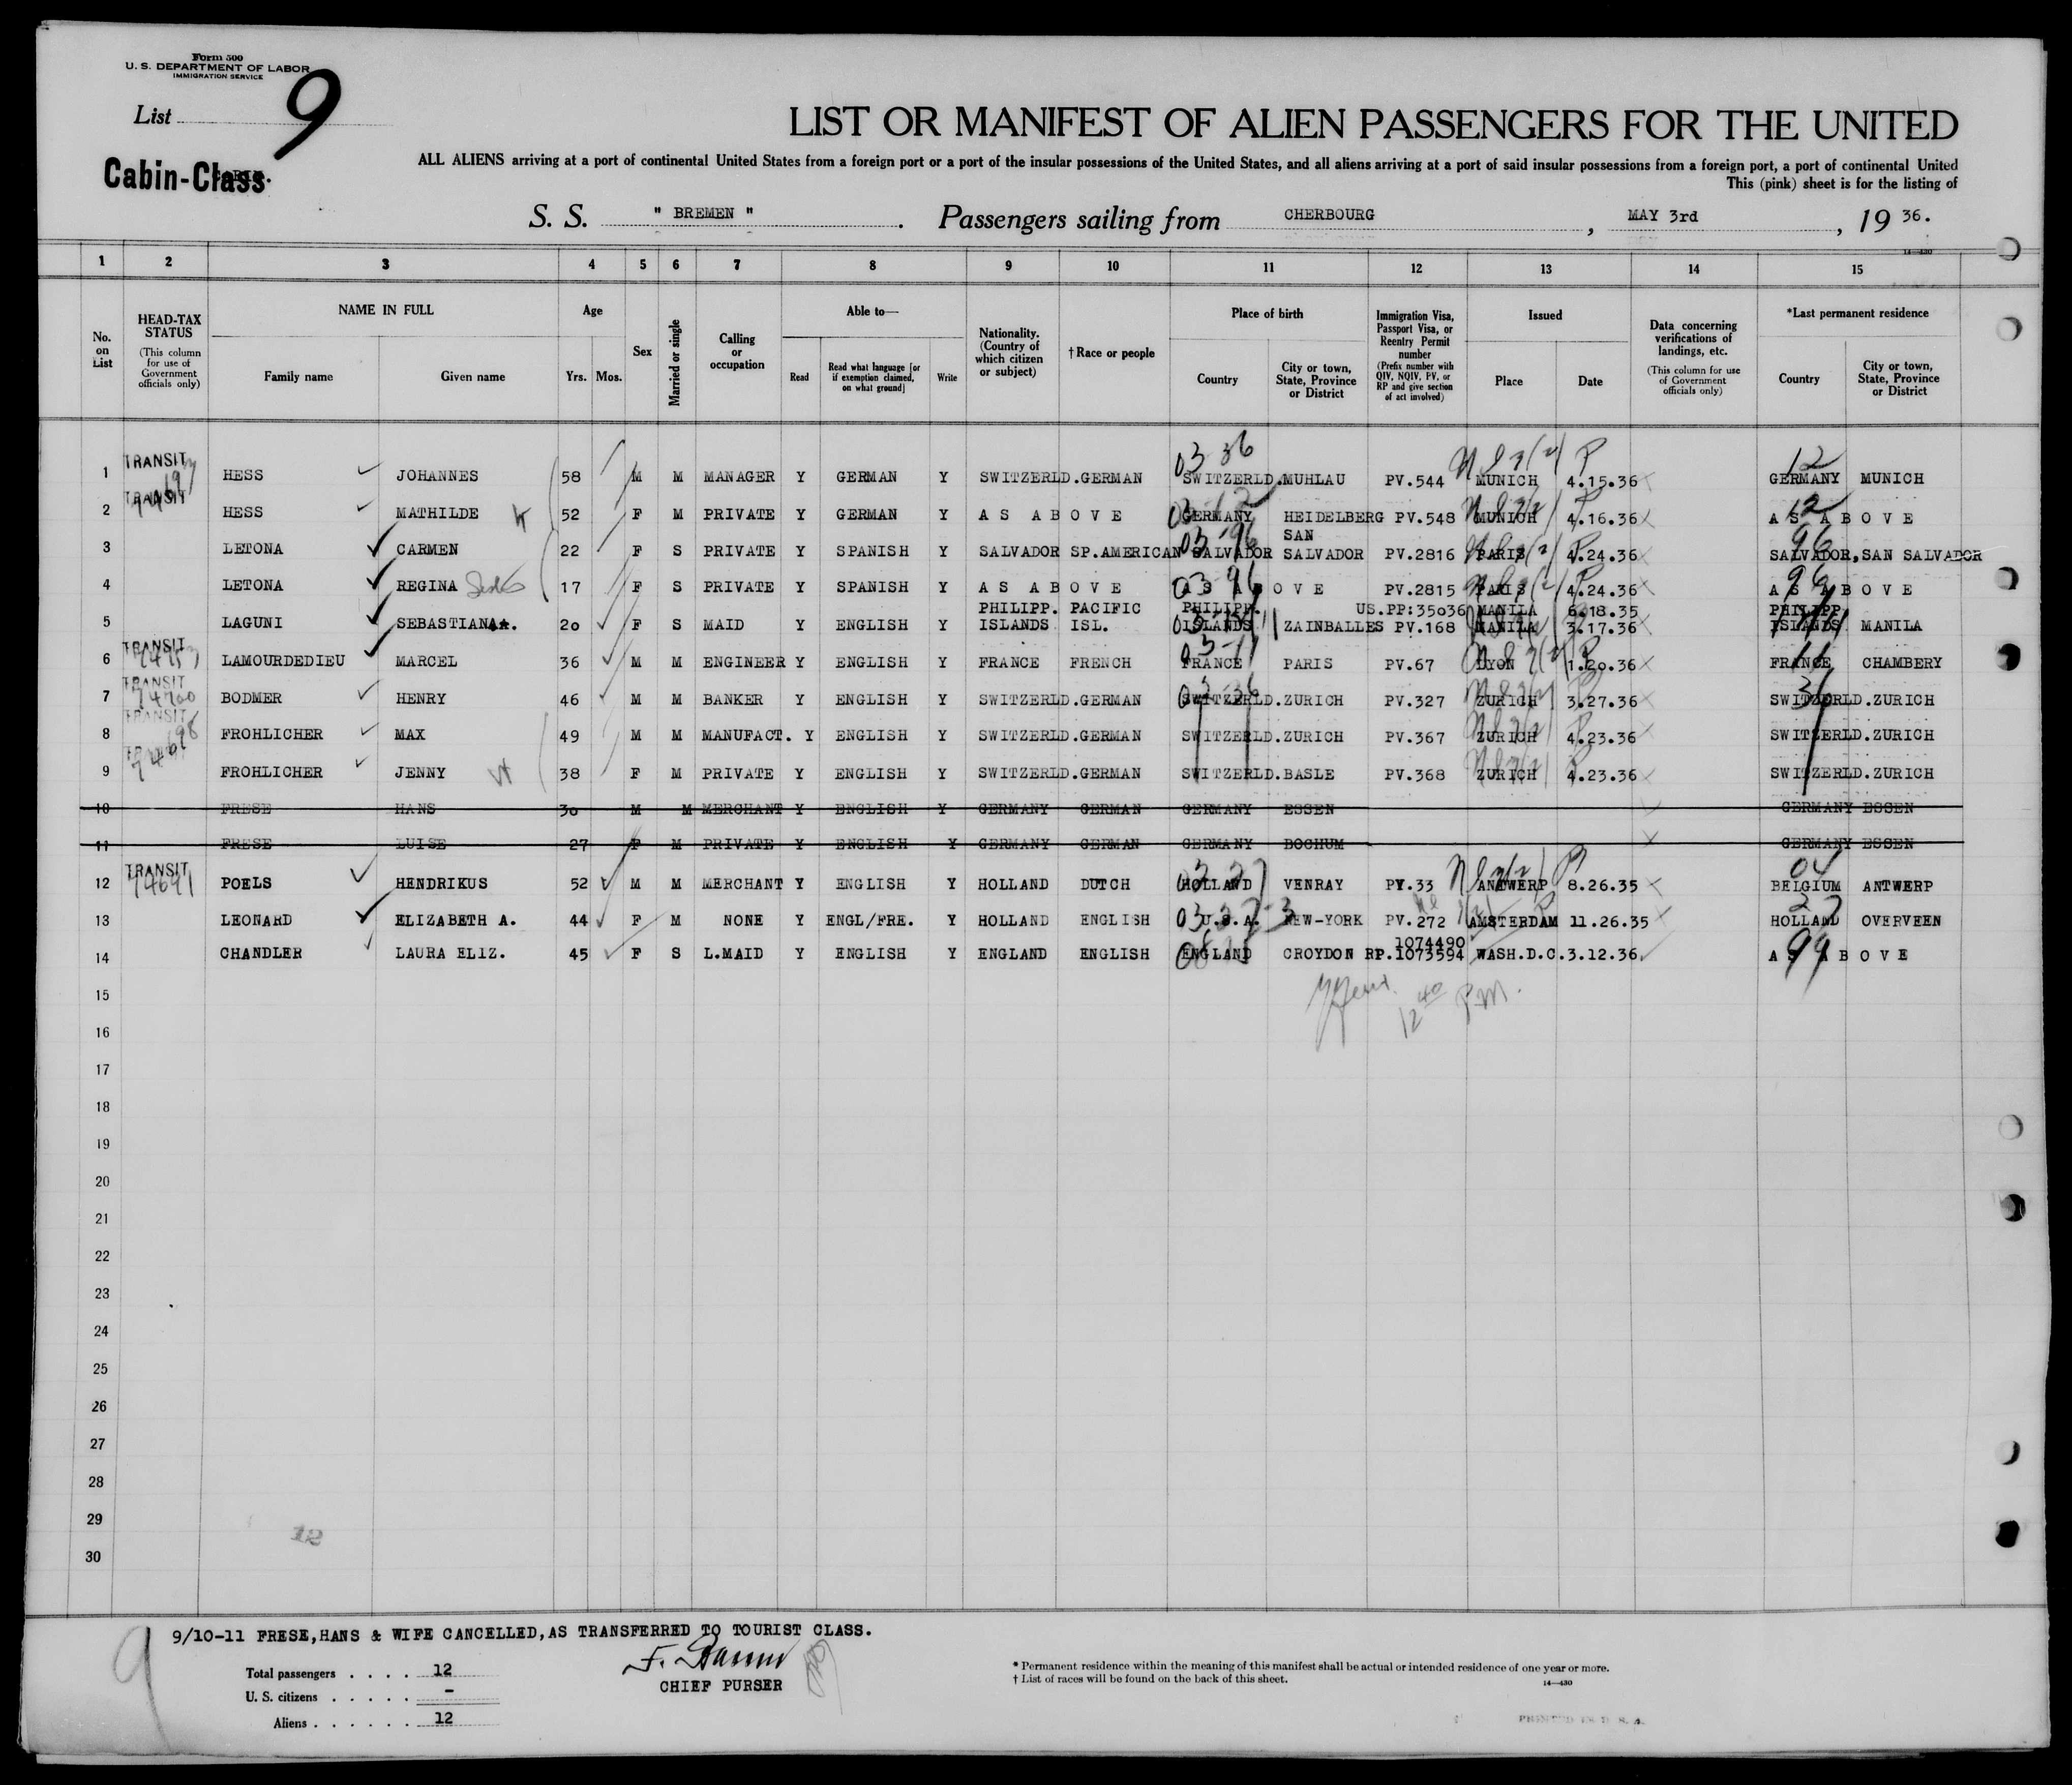 Form 500
U. S. DEPARTMENT OF LABOR
IMMIGRATION SERVICE
List 9
Cabin-Class
LIST OR MANIFEST OF ALIEN PASSENGERS FOR THE UNITED
ALL ALIENS arriving at a port of continental United States from a foreign port or a port of the insular possessions of the United States, and all aliens arriving at a port of said insular possessions from a foreign port, a port of continental United
This (pink) sheet is for the listing of
S. S. " BREMEN ". Passengers sailing from CHERBOURG, MAY 3rd, 19 36.
14—430
1 2 3 4 5 6 7 8 9 10 11 12 13 14 15
No. on List
HEAD-TAX STATUS
(This column for use of Government officials only)
NAME IN FULL
Family name Given name
Age
Yrs. Mos.
Sex
Married or single
Calling or occupation
Able to—
Read
Read what language [or if exemption claimed, on what ground]
Write
Nationality. (Country of which citizen or subject)
†Race or people
Place of birth
Country
City or town, State, Province or District
Immigration Visa, Passport Visa, or Reentry Permit number
(Prefix number with QIV, NQIV, PV, or RP and give section of act involved)
Issued
Place Date
Data concerning verifications of landings, etc.
(This column for use of Government officials only)
*Last permanent residence
Country
City or town, State, Province or District
03 36 12
1 TRANSIT HESS JOHANNES 58 M M MANAGER Y GERMAN Y SWITZERLD. GERMAN SWITZERLD. MUHLAU PV.544 MUNICH 4.15.36 GERMANY MUNICH
2 TRANSIT HESS MATHILDE 52 F M PRIVATE Y GERMAN Y A S A B O V E GERMANY HEIDELBERG PV.548 MUNICH 4.16.36 12 A S A B O V E
SAN
3 LETONA CARMEN 22 F S PRIVATE Y SPANISH Y SALVADOR SP.AMERICAN SALVADOR SALVADOR PV.2816 PARIS 4.24.36 96 SALVADOR, SAN SALVADOR
4 LETONA REGINA 17 F S PRIVATE Y SPANISH Y A S A B O V E A S A B O V E PV.2815 PARIS 4.24.36 96 A S A B O V E
PHILIPP. PACIFIC PHILIPP. US.PP:35036 MANILA 6.18.35 PHILIPP.
5 LAGUNI SEBASTIANA. 20 F S MAID Y ENGLISH Y ISLANDS ISL. ISLANDS ZAINBALLES PV.168 MANILA 3.17.36 ISLANDS MANILA
6 TRANSIT LAMOURDEDIEU MARCEL 36 M M ENGINEER Y ENGLISH Y FRANCE FRENCH 03-11 FRANCE PARIS PV.67 LYON 1.20.36 11 FRANCE CHAMBERY
7 TRANSIT 74700 BODMER HENRY 46 M M BANKER Y ENGLISH Y SWITZERLD. GERMAN 03-36 SWITZERLD. ZURICH PV.327 ZURICH 3.27.36 36 SWITZERLD. ZURICH
8 TRANSIT FROHLICHER MAX 49 M M MANUFACT. Y ENGLISH Y SWITZERLD. GERMAN SWITZERLD. ZURICH PV.367 ZURICH 4.23.36 SWITZERLD. ZURICH
9 FROHLICHER JENNY 38 F M PRIVATE Y ENGLISH Y SWITZERLD. GERMAN SWITZERLD. BASLE PV.368 ZURICH 4.23.36 SWITZERLD. ZURICH
10 FRESE HANS 30 M M MERCHANT Y ENGLISH Y GERMANY GERMAN GERMANY ESSEN GERMANY ESSEN
11 FRESE LUISE 27 F M PRIVATE Y ENGLISH Y GERMANY GERMAN GERMANY BOCHUM GERMANY ESSEN
12 TRANSIT 74691 POELS HENDRIKUS 52 M M MERCHANT Y ENGLISH Y HOLLAND DUTCH HOLLAND VENRAY PV.33 ANTWERP 8.26.35 04 BELGIUM ANTWERP
13 LEONARD ELIZABETH A. 44 F M NONE Y ENGL/FRE. Y HOLLAND ENGLISH U.S.A. NEW-YORK PV.272 AMSTERDAM 11.26.35 27 HOLLAND OVERVEEN
1074490
14 CHANDLER LAURA ELIZ. 45 F S L.MAID Y ENGLISH Y ENGLAND ENGLISH ENGLAND CROYDON RP.1073594 WASH.D.C. 3.12.36. 99 A S A B O V E
15
12 40 P.M.
16
17
18
19
20
21
22
23
24
25
26
27
28
29
12
30
9
9/10-11 FRESE,HANS & WIFE CANCELLED,AS TRANSFERRED TO TOURIST CLASS.
Total passengers . . . . 12
U. S. citizens . . . . . -
Aliens . . . . . . 12
CHIEF PURSER
* Permanent residence within the meaning of this manifest shall be actual or intended residence of one year or more.
† List of races will be found on the back of this sheet.
14—430
PRINTED IN U. S. A.